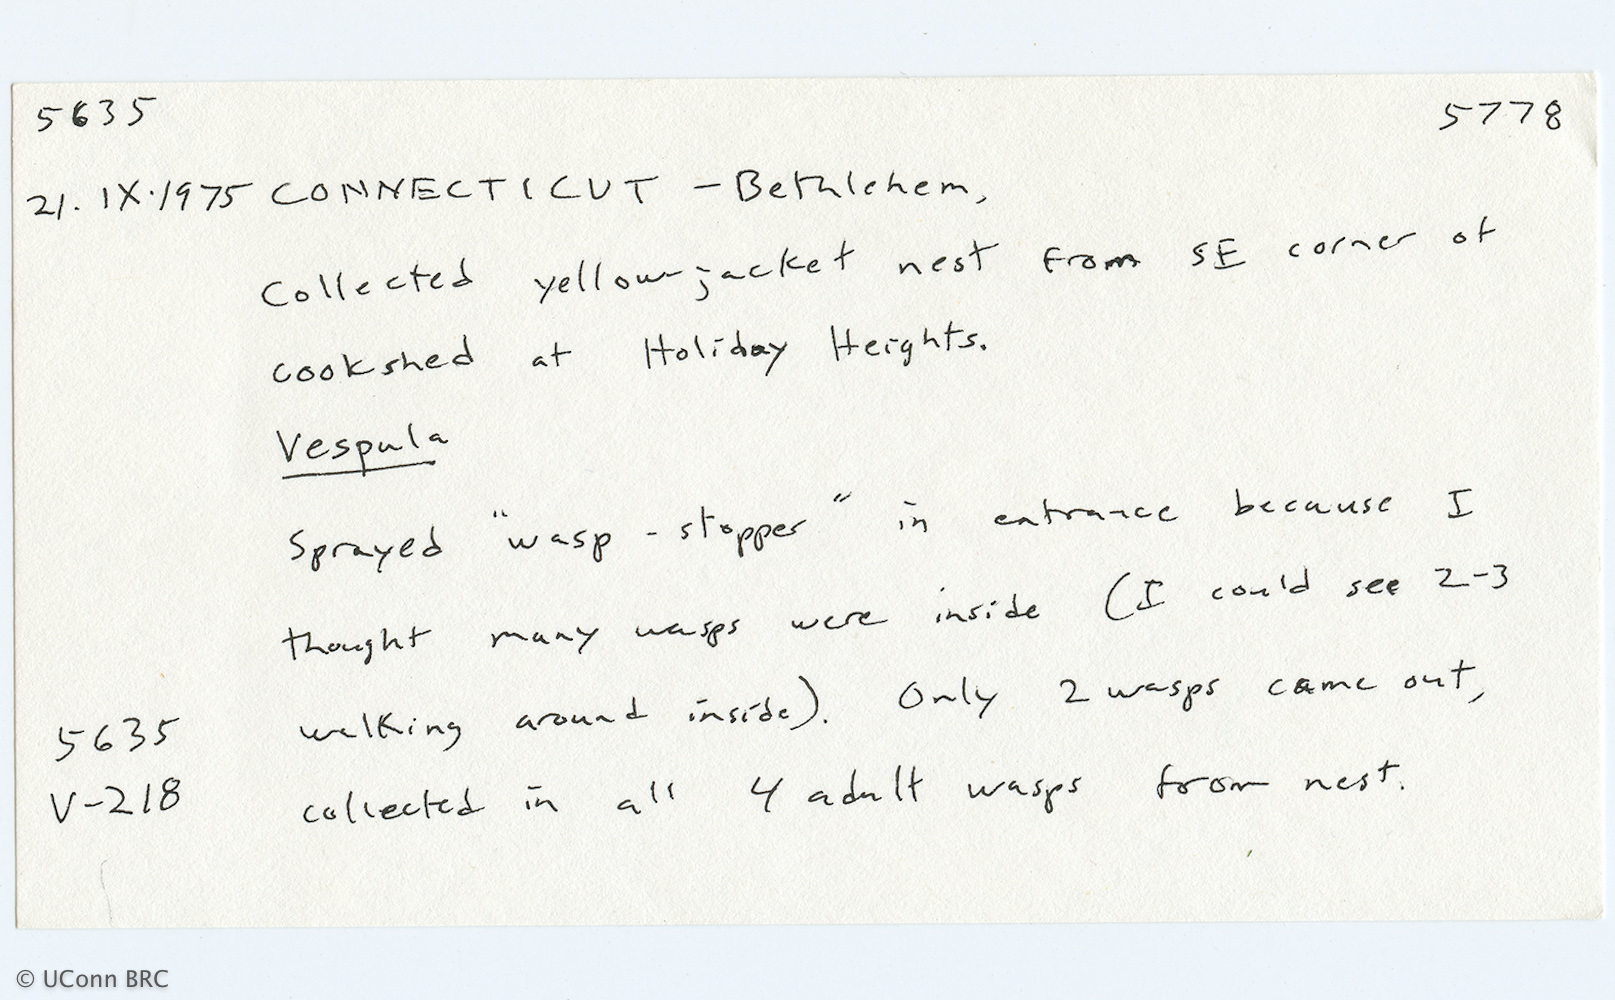 5635 5778
21.IX.1975 CONNECTICUT - Bethlehem,
Collected yellow-jacket nest from SE corner of
cookshed at Holiday Heights.
Vespula
Sprayed "wasp-stopper" in entrance because I
thought many wasps were inside (I could see 2-3
5635 walking around inside). Only 2 wasps came out,
V-218 collected in all 4 adult wasps from nest.
© UConn BRC